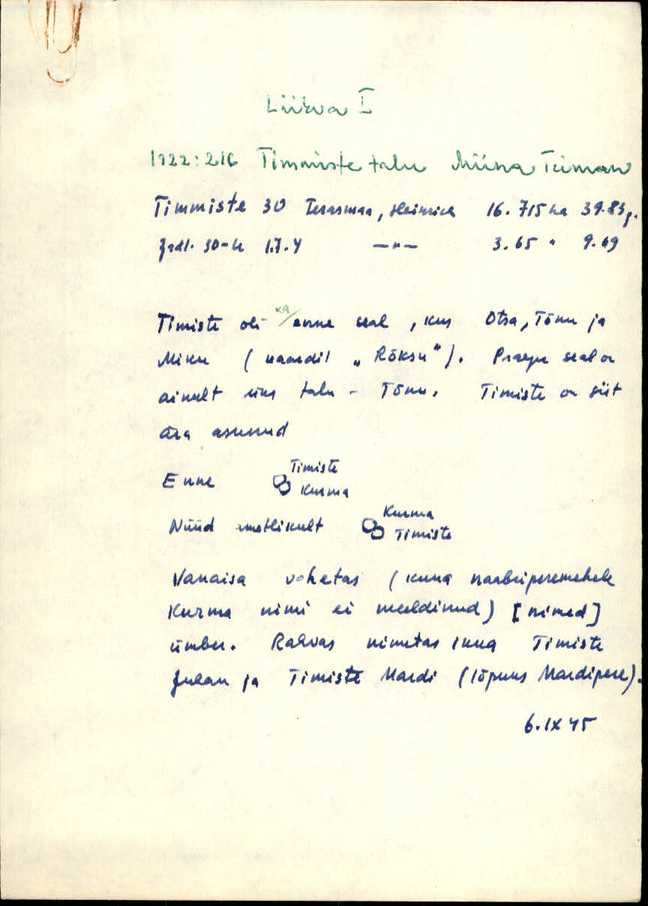 Liiva I
1922:216 Timmiste talu Miina Teiman
Timmiste 30 Terasmaa, Heinrich 16.715 ha 39.83 g.
Jrdl. 30-le 1.7.4 —"— 3.65 " 9.49
Timiste oli ka enne seal, kus Otsa, Tõnu ja
Miku (kaardil „Rõksu"). Praegu seal on
ainult üks talu - Tõnu. Timiste on siit
ära asunud
Enne Timiste
Kurma
Nüüd ametlikult Kurma
Timiste
Vanaisa vahetas (kuna naabriperemehele
Kurma nimi ei meeldinud) [nimed]
ümber. Rahvas nimetas ikka Timiste
Juhan ja Timiste Mardi (lõpuks Mardipere).
6.IX 45